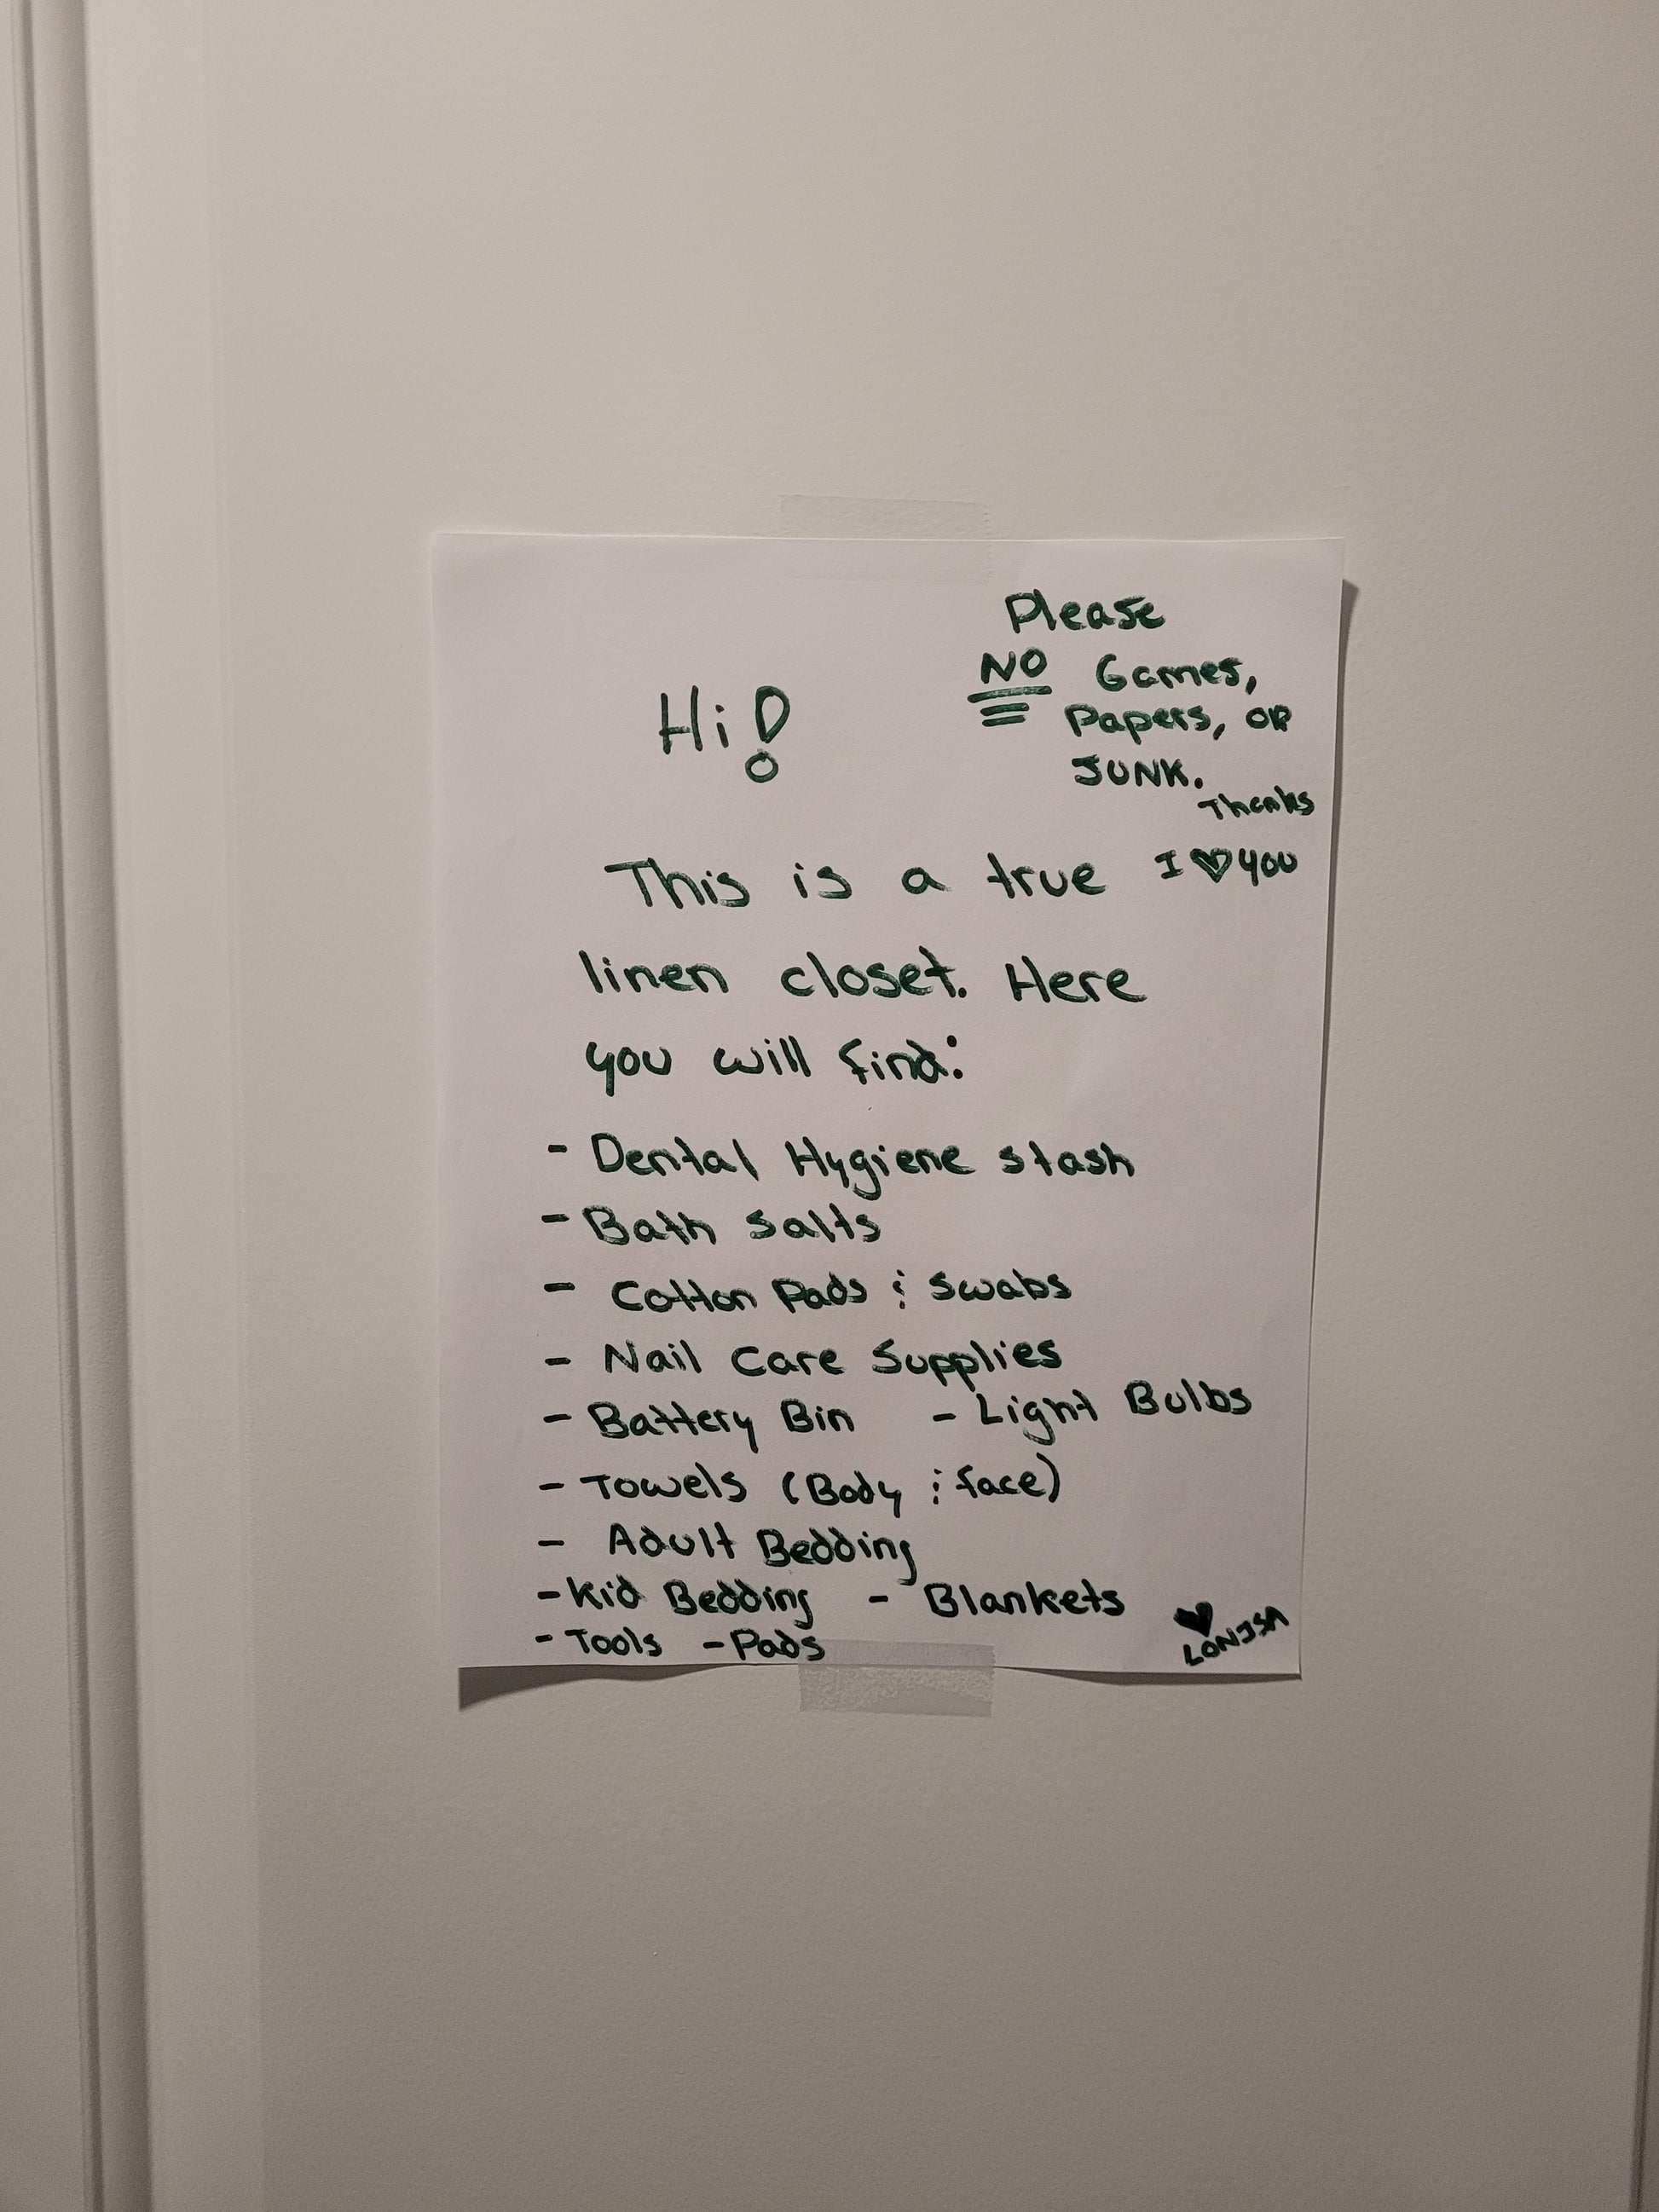 Hi!
Please
NO Games,
Papers, or
JUNK.
Thanks
I ♥ you
This is a true
linen closet. Here
you will find:
- Dental Hygiene stash
- Bath Salts
- Cotton Pads & Swabs
- Nail Care Supplies
- Battery Bin - Light Bulbs
- Towels (Body & face)
- Adult Bedding
- Kid Bedding - Blankets
- Tools - Pads
♥
LONJSA